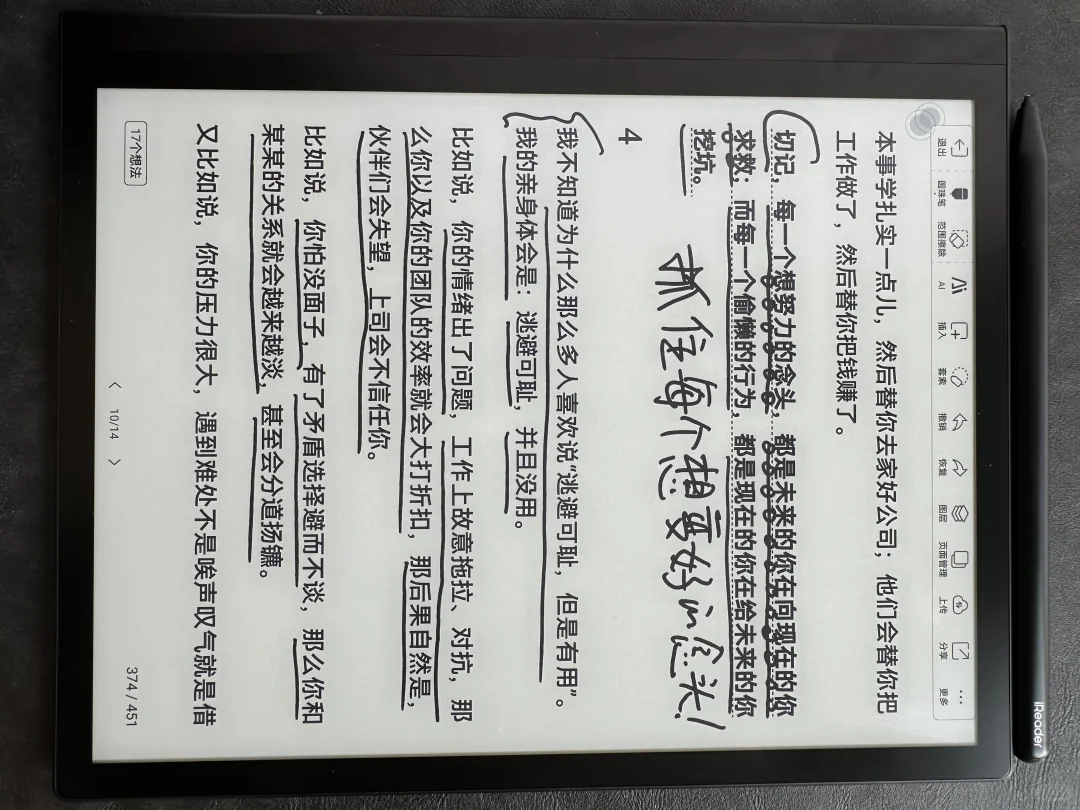 退出
圆珠笔
范围擦除
Ai
AI
插入
套索
撤销
恢复
图层
页面管理
上传
分享
更多
本事学扎实一点儿，然后替你去家好公司；他们会替你把
工作做了，然后替你把钱赚了。
切记，每一个想努力的念头，都是未来的你在向现在的你
求救；而每一个偷懒的行为，都是现在的你在给未来的你
挖坑。
抓住每个想要好的念头！
4
我不知道为什么那么多人喜欢说“逃避可耻，但是有用”。
我的亲身体会是：逃避可耻，并且没用。
比如说，你的情绪出了问题，工作上故意拖拉、对抗，那
么你以及你的团队的效率就会大打折扣，那后果自然是，
伙伴们会失望，上司会不信任你。
比如说，你怕没面子，有了矛盾选择避而不谈，那么你和
某某的关系就会越来越淡，甚至会分道扬镳。
又比如说，你的压力很大，遇到难处不是唉声叹气就是借
17个想法
10/14
374 / 451
iReader